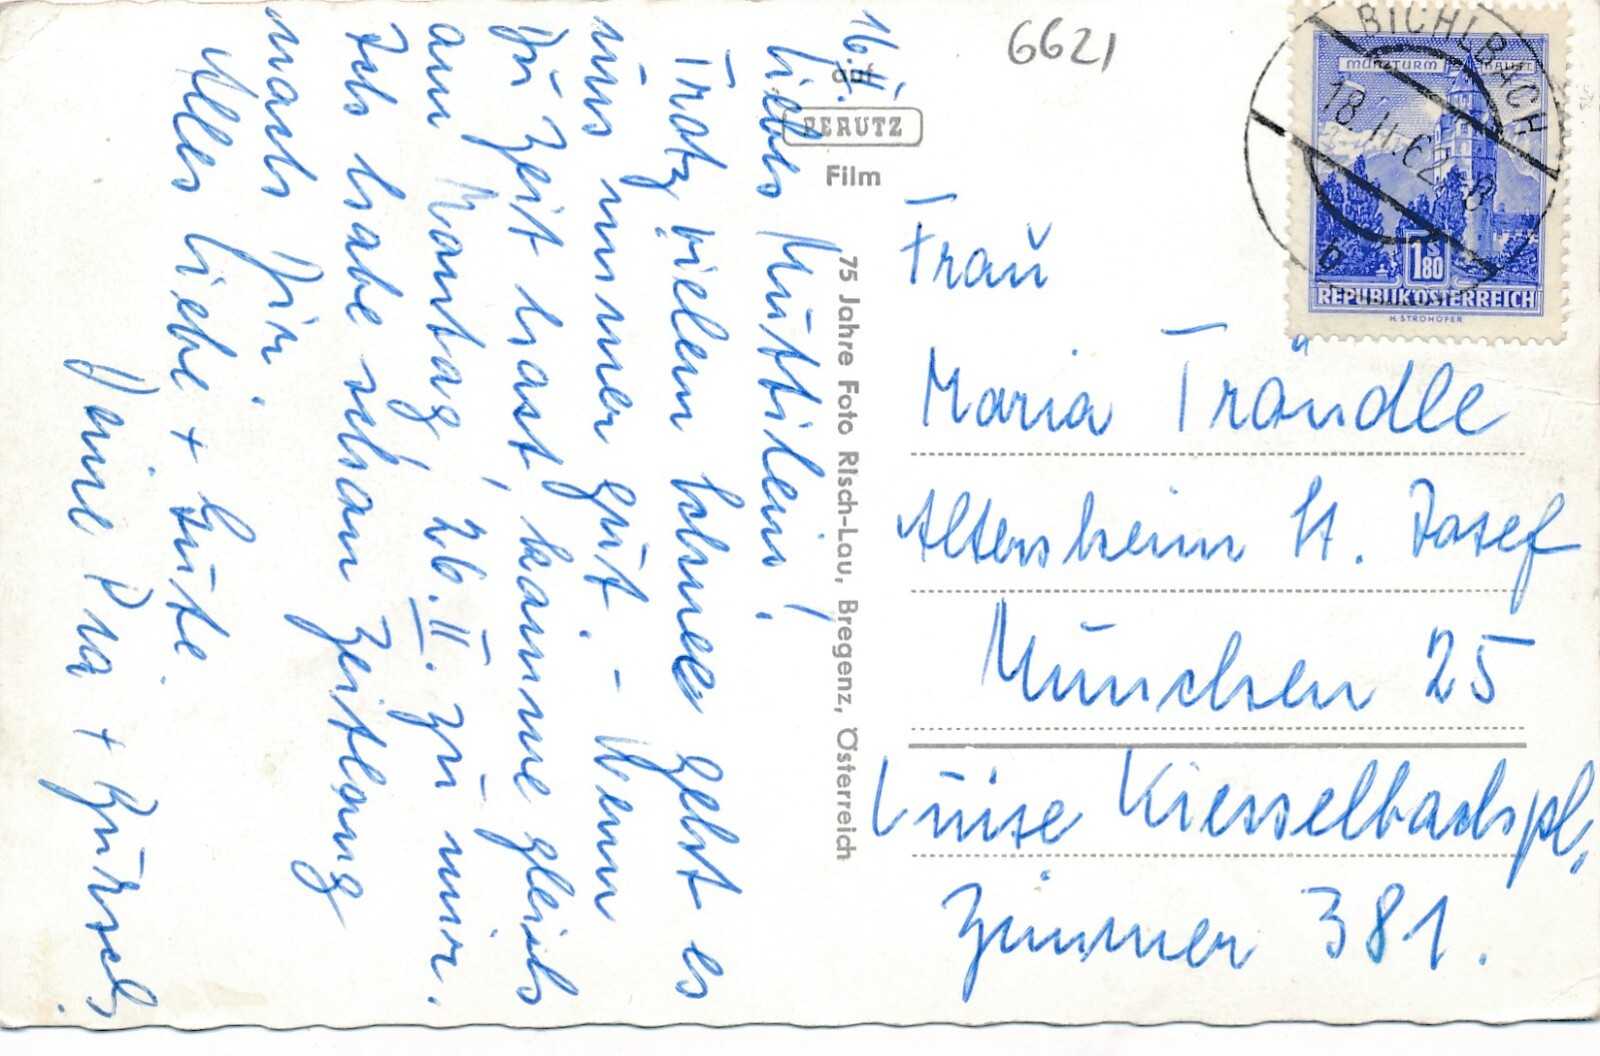 16.II.
Liebes Muttilein!
Trotz vielem Schnee geht es
uns immer gut. - Wenn
Du Zeit hast, komme gleich
am Montag, 26.II. zu mir.
Ich habe schon Zeitlang
nach Dir.
Alles Liebe + Gute.
Deine Pia + Bursch.
6621
auf
PERUTZ
Film
75 Jahre Foto Risch-Lau, Bregenz, Österreich
BICHLBACH
18.II.62-8
b
MÜNZTURM HALL I.T.
1.80
REPUBLIK ÖSTERREICH
H. STROHOFER
Frau
Maria Trändle
Altersheim St. Josef
München 25
Luise Kiesselbachpl.
Zimmer 381.